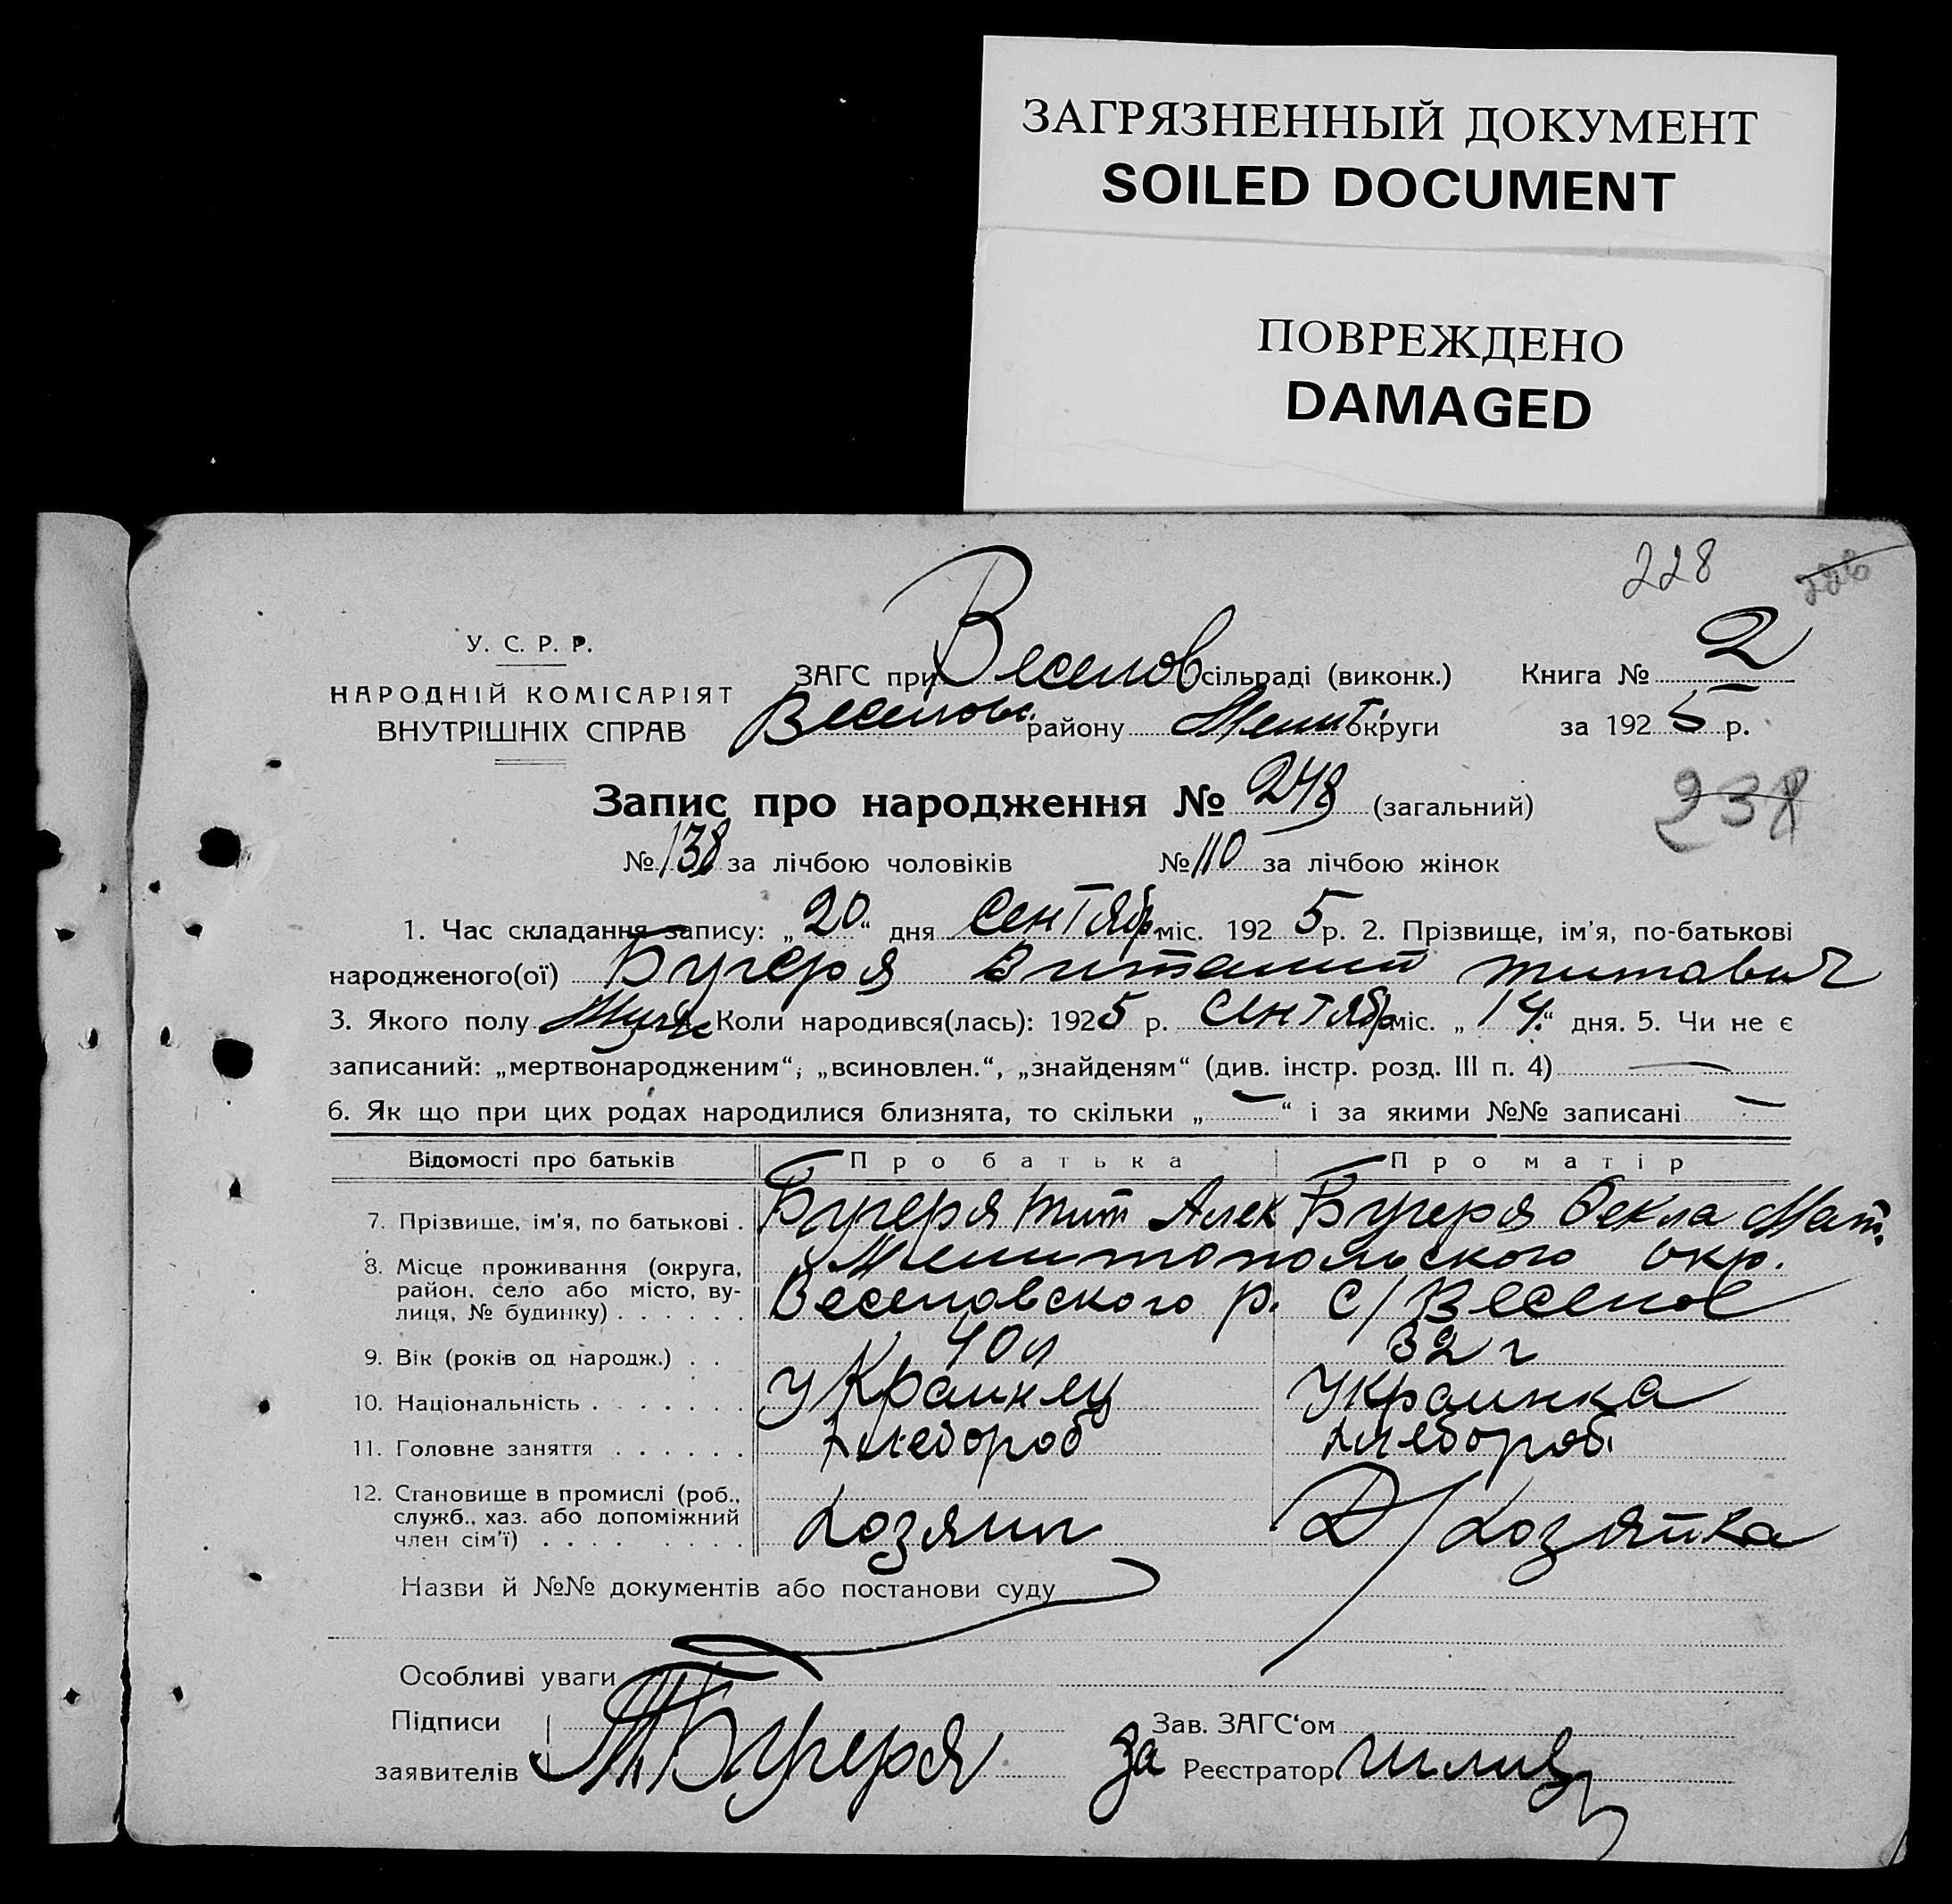 ЗАГРЯЗНЕННЫЙ ДОКУМЕНТ
SOILED DOCUMENT
ПОВРЕЖДЕНО
DAMAGED
228
У. С. Р. Р.
НАРОДНІЙ КОМІСАРІЯТ
ВНУТРІШНІХ СПРАВ
ЗАГС при Веселов сільраді (виконк.) Книга № 2
Веселовс. району Мелит. округи за 1925 р.
Запис про народження № 248 (загальний)
238
№ 138 за лічбою чоловіків № 110 за лічбою жінок
1. Час складання запису: „20“ дня Сентябр міс. 1925 р. 2. Прізвище, ім'я, по-батькові
народженого(ої) Бугеря Виталий Титович
3. Якого полу Муж 4. Коли народився(лась): 1925 р. Сентябр міс. „14“ дня. 5. Чи не є
записаний: „мертвонародженим“, „всиновлен.“, „знайденям“ (див. інстр. розд. III п. 4) —
6. Як що при цих родах народилися близнята, то скільки „—“ і за якими №№ записані —
Відомості про батьків Про батька Про матір
7. Прізвище, ім'я, по батькові . Бугеря Тит Алек Бугеря Фекла Мат.
8. Місце проживання (округа, район, село або місто, вулиця, № будинку) . . . . . . Мелитопольского окр.
Веселовского р. с/Веселое
9. Вік (років од народж.) . . 40 л 32 г
10. Національність . . . . . . . Украинец Украинка
11. Головне заняття . . . . . . Хлебороб Хлебороб
12. Становище в промислі (роб., служб., хаз. або допоміжний член сім'ї) . . . . . . . . Хозяин Д/Хозяйка
Назви й №№ документів або постанови суду
Особливі уваги
Підписи Зав. ЗАГС‘ом
заявителів Т Бугеря за Реєстратор